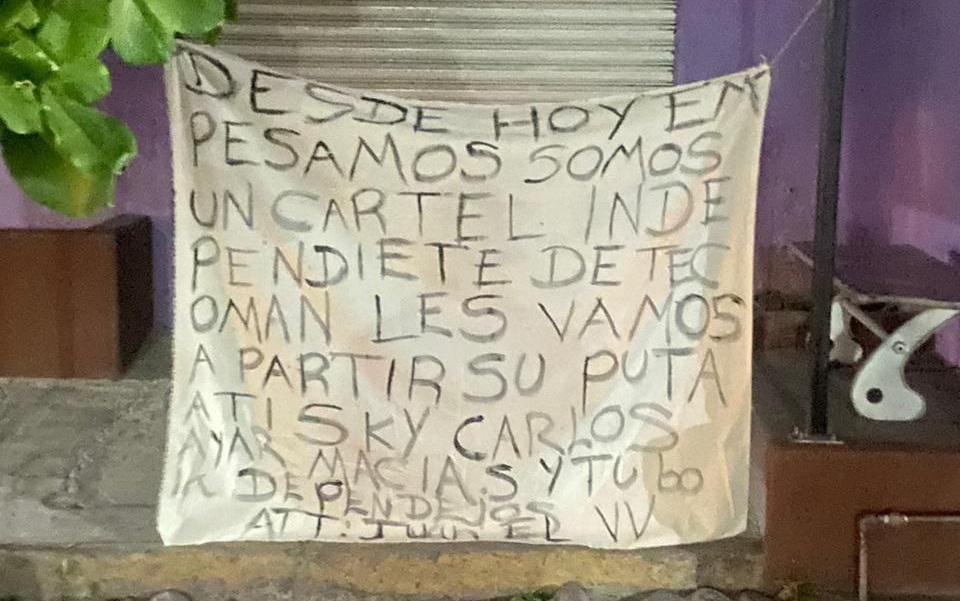 DESDE HOY EM
PESAMOS SOMOS
UN CARTEL INDE
PENDIETE DE TEC
OMAN LES VAMOS
A PARTIR SU PUTA
A TI SKY CARLOS
AYAR MACIAS Y TU bO
LA DE PENDEJOS
ATT: EL VV